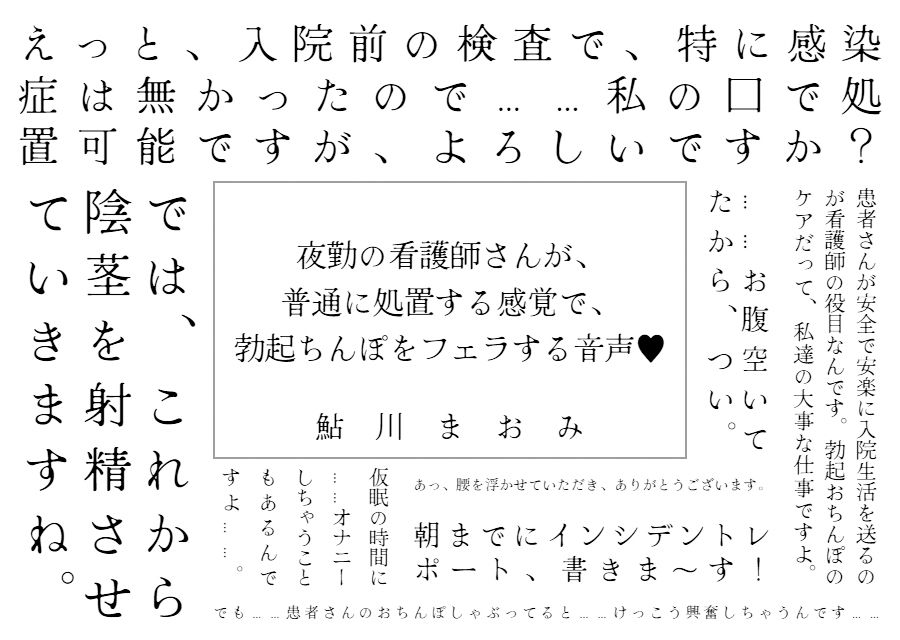 えっと、入院前の検査で、特に感染
症は無かったので……私の口で処
置可能ですが、よろしいですか？
患者さんが安全で安楽に入院生活を送るの
が看護師の役目なんです。勃起おちんぽの
ケアだって、私達の大事な仕事ですよ。
……お腹空いて
たから、つい。
夜勤の看護師さんが、
普通に処置する感覚で、
勃起ちんぽをフェラする音声♥
鮎川まおみ
では、これから
陰茎を射精させ
ていきますね。
あっ、腰を浮かせていただき、ありがとうございます。
朝までにインシデントレ
ポート、書きま〜す！
仮眠の時間に
……オナニー
しちゃうこと
もあるんで
すよ……。
でも……患者さんのおちんぽしゃぶってると……けっこう興奮しちゃうんです……